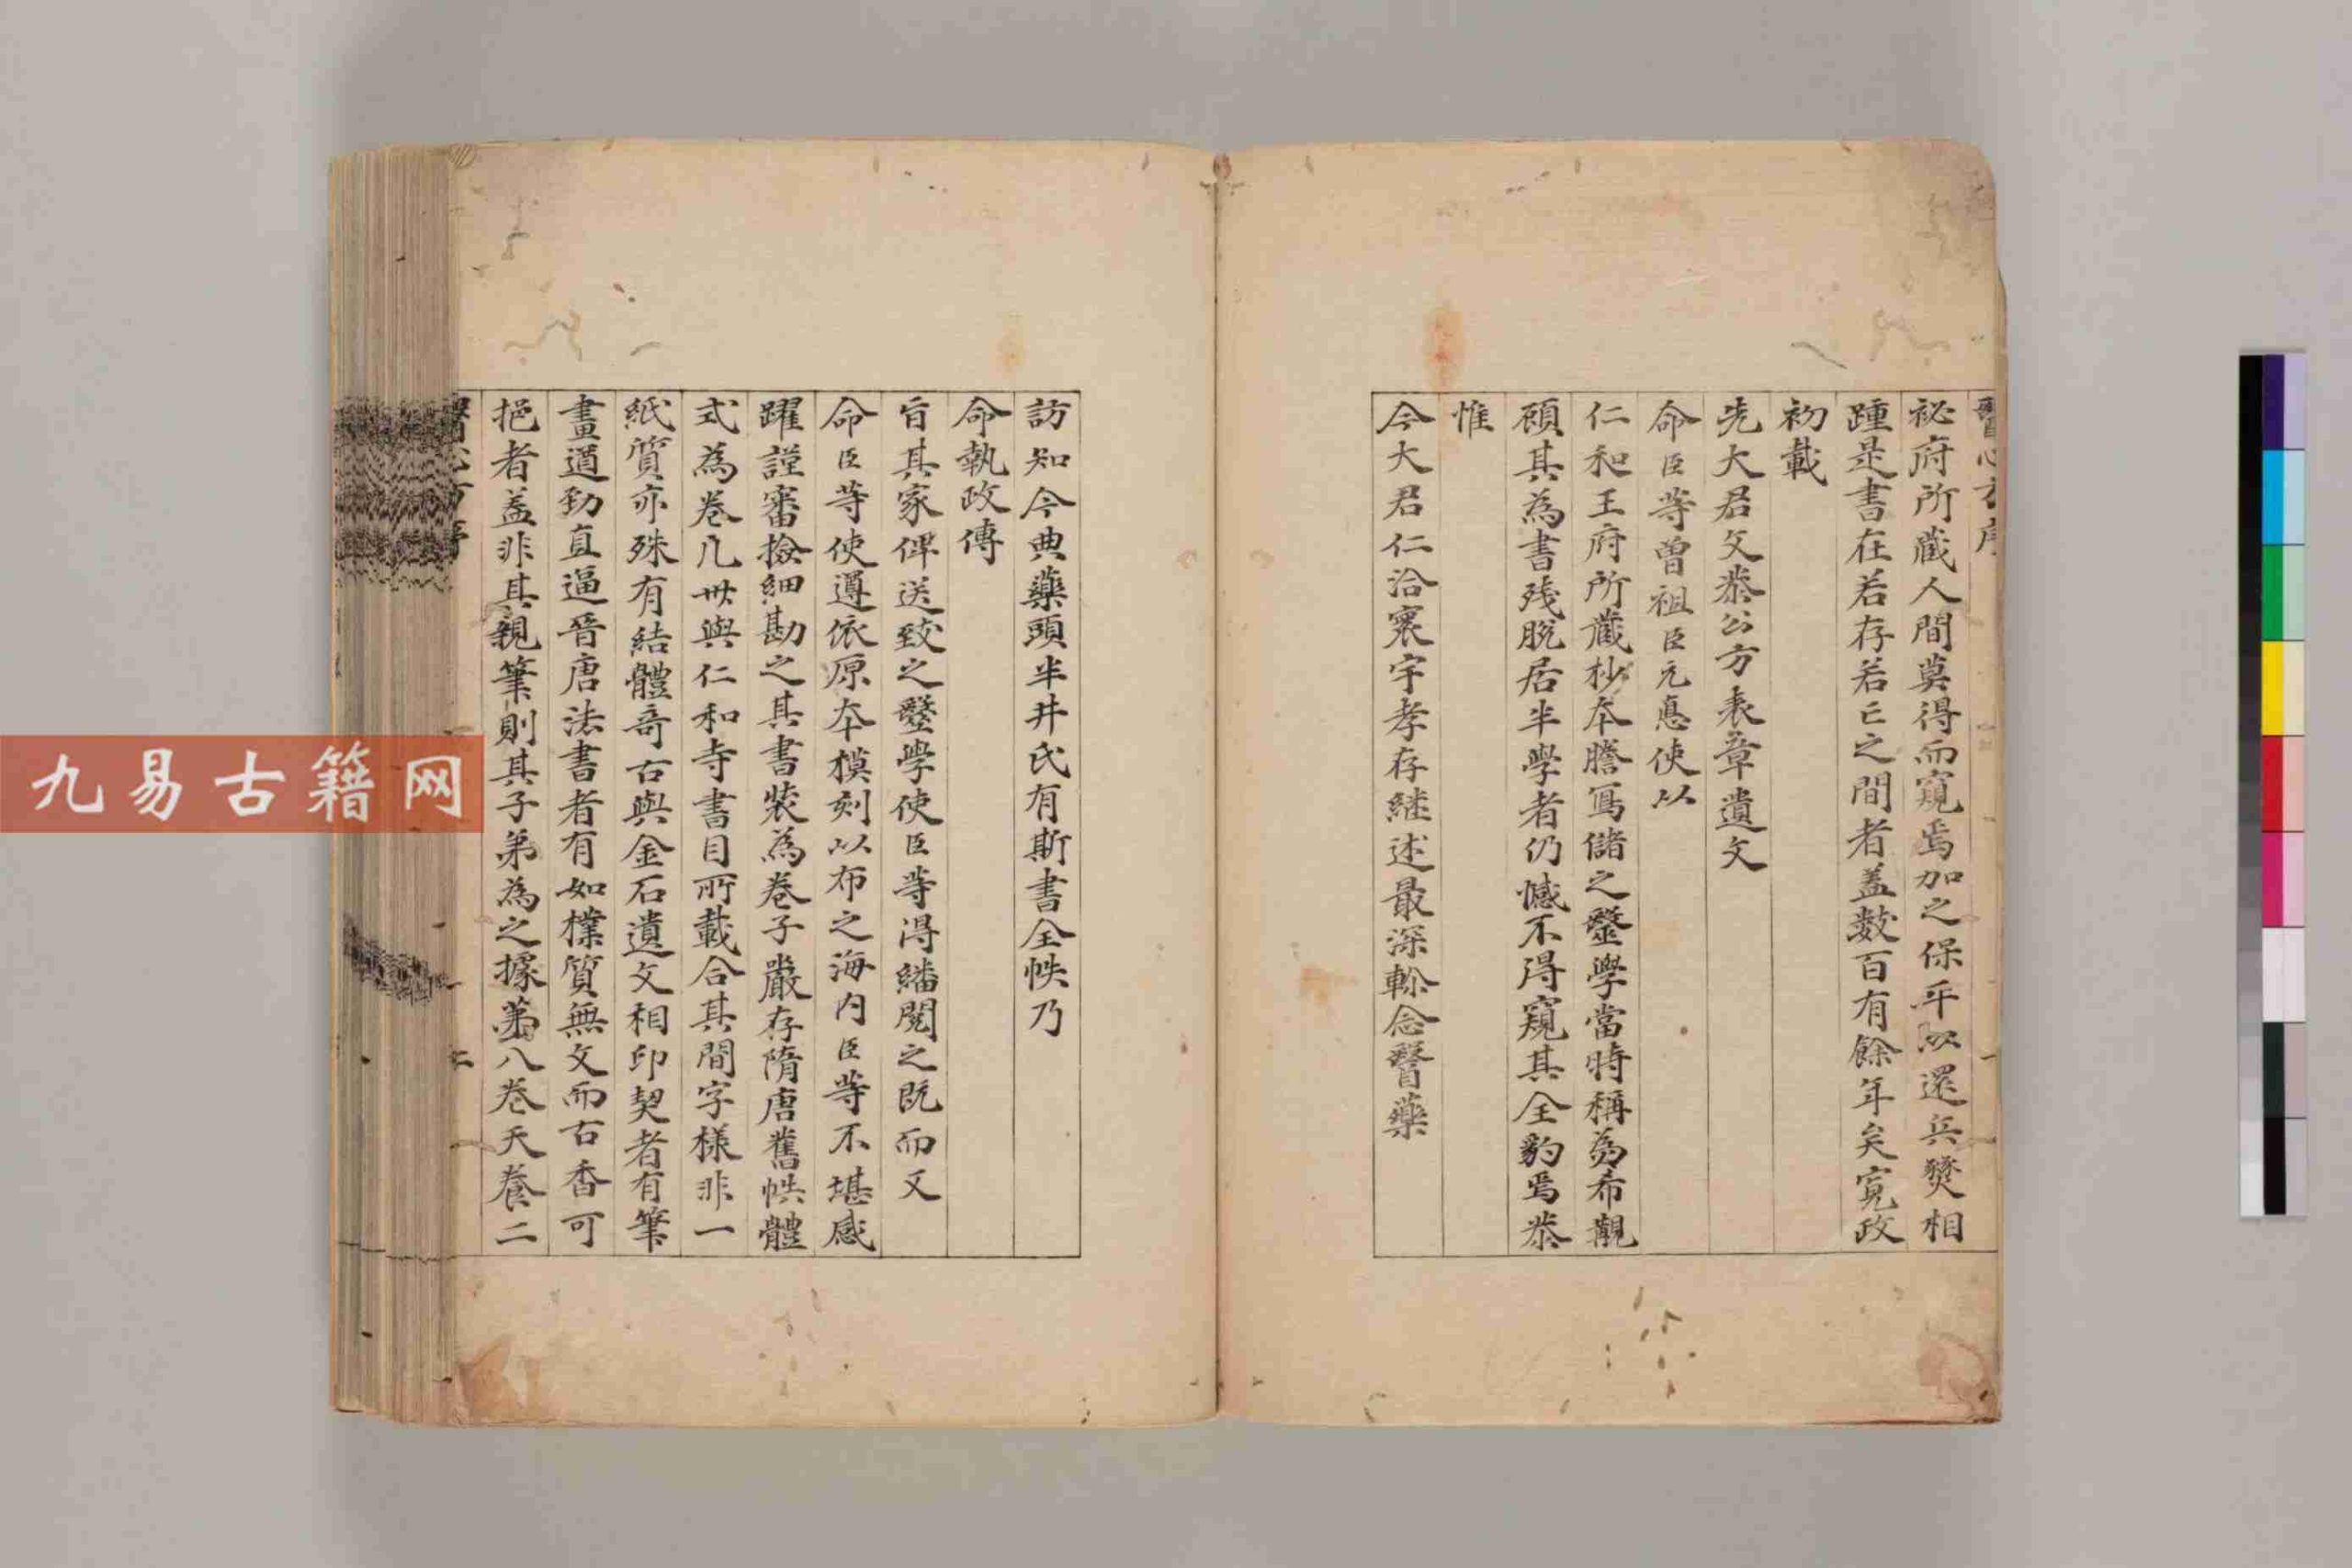 醫心方序
祕府所藏人間莫得而窺焉加之保平以還兵燹相
踵是書在若存若亡之間者盖数百有餘年矣寛政
初載
先大君文恭公方表章遺文
命臣等曽祖臣元悳使以
仁和王府所藏杪本謄寫儲之毉學當時稱為希觀
頋其為書残脫居半學者仍憾不得窺其全豹焉恭
惟
今大君仁洽寰宇孝存継述最深軫念醫藥
訪知今典藥頭半井氏有斯書全帙乃
命執政傳
旨其家俾送致之毉學使臣等得繙閱之既而又
命臣等使遵依原本模刻以布之海内臣等不堪感
躍謹審撿細勘之其書裝為卷子嚴存隋唐舊帙體
式為卷凡丗與仁和寺書目所載合其間字様非一
紙質亦殊有結體奇古與金石遺文相印契者有筆
畫遒勁直逼晉唐法書者有如樸質無文而古香可
挹者盖非其親筆則其子弟為之據第八卷天養二
九易古籍网